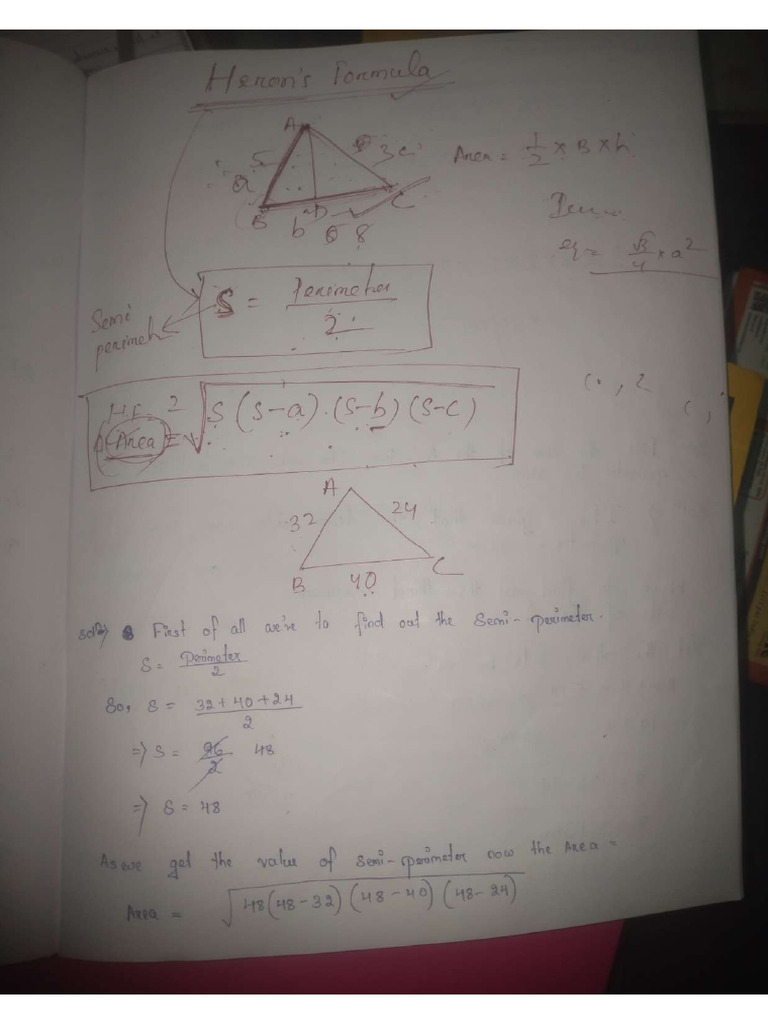 Heron's Formula
A
5 3 c
a
B D C
b 8
Area = 1/2 × B × h
√3/4 × a²
S = Perimeter/2
Semi
perimet
H.F. 2
Area = √S(S-a).(S-b)(S-c)
A
32 24
B 40 C
First of all we're to find out the Semi-perimeter.
S = Perimeter/2
So, S = 32+40+24/2
=> S = 96/2 48
=> S = 48
As we get the value of Semi-perimeter now the Area =
Area = √48(48-32)(48-40)(48-24)